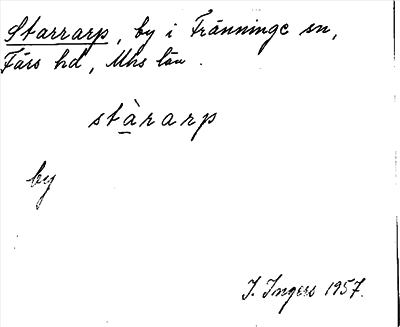 Starrarp, by i Fränninge sn,
Färs hd, Mhs län.
stàrarp
by
I. Ingers 1957.